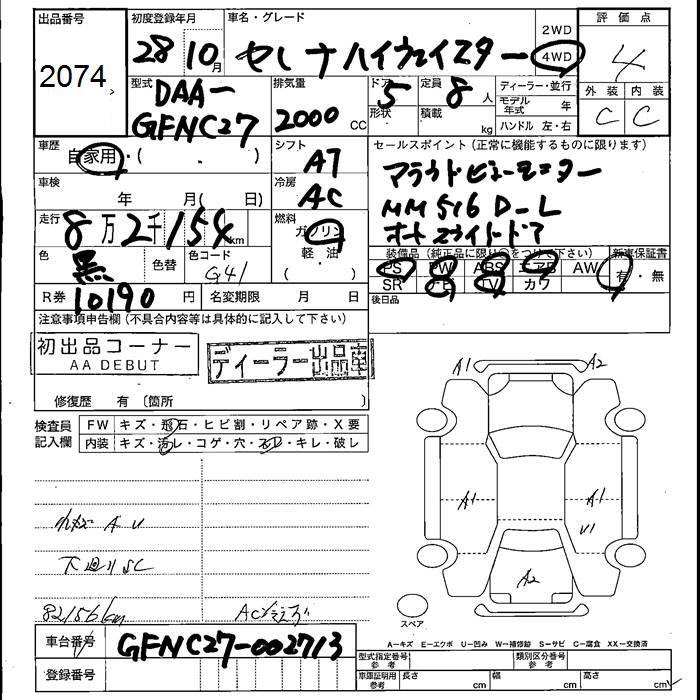 出品番号
2074
初度登録年月
28 10月
車名・グレード
セレナハイウェイスター
2WD
4WD
評価点
4
外装 内装
C C
型式
DAA-
GFNC27
排気量
2000 CC
ドア 5
形状
定員 8 人
積載 kg
ディーラー・並行
モデル年式 年
ハンドル 左・右
車歴
自家用・( . )
シフト
AT
セールスポイント(正常に機能するものに限ります)
アラウンドビューモニター
MM516D-L
オートスライドドア
車検
年 月( 日)
冷房
AC
走行
8万2千154km
燃料
ガソリン
軽・油
色
黒
色替
色コード
G41
装備品(純正品に限り○をつけて下さい)
PS PW ABS エアB AW
SR ナビ TV カワ
新車保証書
有・無
R券 10190 円
名変期限 月 日
後日品
注意事項申告欄(不具合内容等は具体的に記入して下さい)
初出品コーナー
AA DEBUT
ディーラー出品車
修復歴 有〔箇所 〕
検査員
記入欄
FW キズ・飛石・ヒビ割・リペア跡・X要
内装 キズ・汚レ・コゲ・穴・スレ・キレ・破レ
A1 A2
A1 A1
U1
A2
A U
下廻りSC
82156km
スペア
A=キズ E=エクボ U=凹み W=補修跡 S=サビ C=腐食 XX=交換済
車台番号 GFNC27-002713
登録番号
型式指定番号
参考
類別区分番号
参考
車庫証明用
参考
長さ cm 幅 cm 高さ cm